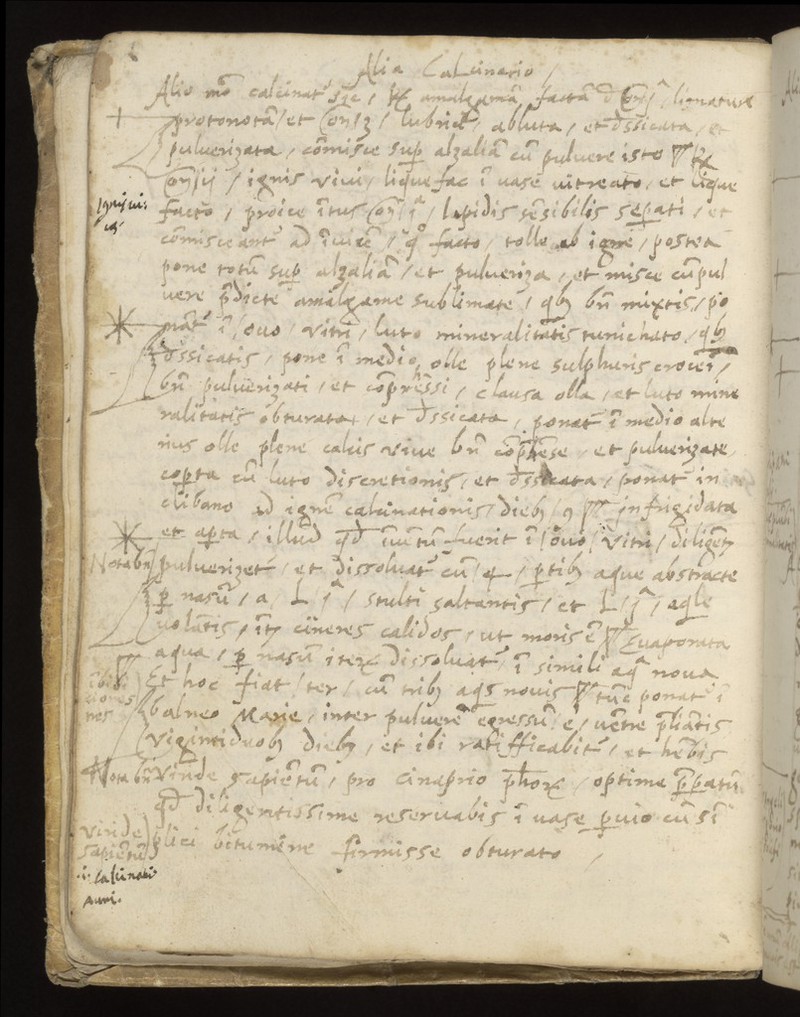 Alia Calcinatio
Alio mō calcinatʳ sic / ℞ amalgamā factā đ Con̄j ͣ, lignature
protonotā / et Con̄ʒ / lubricā, abluta / et đssicata, et
pulverizata, cōmisce sup̄ alzaliā cū pulvere isto ℞
Con̄ij / ignis vivi, liquefac ī vase vitreato, et lique
Ignis vi
vi
facto / p̄roice ītus Con̄ j ͣ, lapidis sēsibilis sep̄ati, et
cōmisceantʳ ad īvicē / q̊ facto / tolle ab igne / postea
pone totū sup̄ alzaliā / et pulveriza, et misce cū pul
vere p̄dicte amalgame sublimate / qbʒ bn̄ mixtis / po
natʳ ī / ovo / vitri / luto mineralitātis tunichato, qbʒ
đssicatis, pone ī medio olle plene sulphuris crocei /
bn̄ pulverizati / et cōpressi / clausa olla / et luto mine
ralitatis obturata / et đssicata, ponatʳ ī medio alte
rius olle plene calcis vive bn̄ cōpresse, et pulverizate,
cop̄ta cū luto discretionis / et đssicata / ponatʳ in
clibano ad ignē calcinationis / diebʒ / 9 infrigidata
et ap̄ta, illud qđ īvētū fuerit ī / ovo / vitri / diligētʒ
Notabn̄
pulverizetʳ, et dissolvatʳ cū / 4 / p̄tibʒ aque abstracte
p̄ nasū, a / L / j ͣ / stulti saltantis / et L / j ͣ, aqile
volātis, ītʒ cineres calidos / ut moris ē Evaporata
aqua / p̄ nasū iterʒ dissolvatʳ, ī simili aq ͣ nova
Et hoc fiat / ter / cū tribʒ aqs novis tūc ponatʳ ī
balneo Marie, inter pulverē egressū e, vētre p̄liātis
vigintiduobʒ diebʒ, et ibi ratifficabitʳ, et hēbis
Notabn̄
viride sapiētū, pro cinaprio phorʒ, optime p̄p̄atū
qđ diligentissime reservabis ī vase p̄vio cū sī
viride
sapiētū
.i. calcinatio
auri.
plici bitumine firmisse obturato,